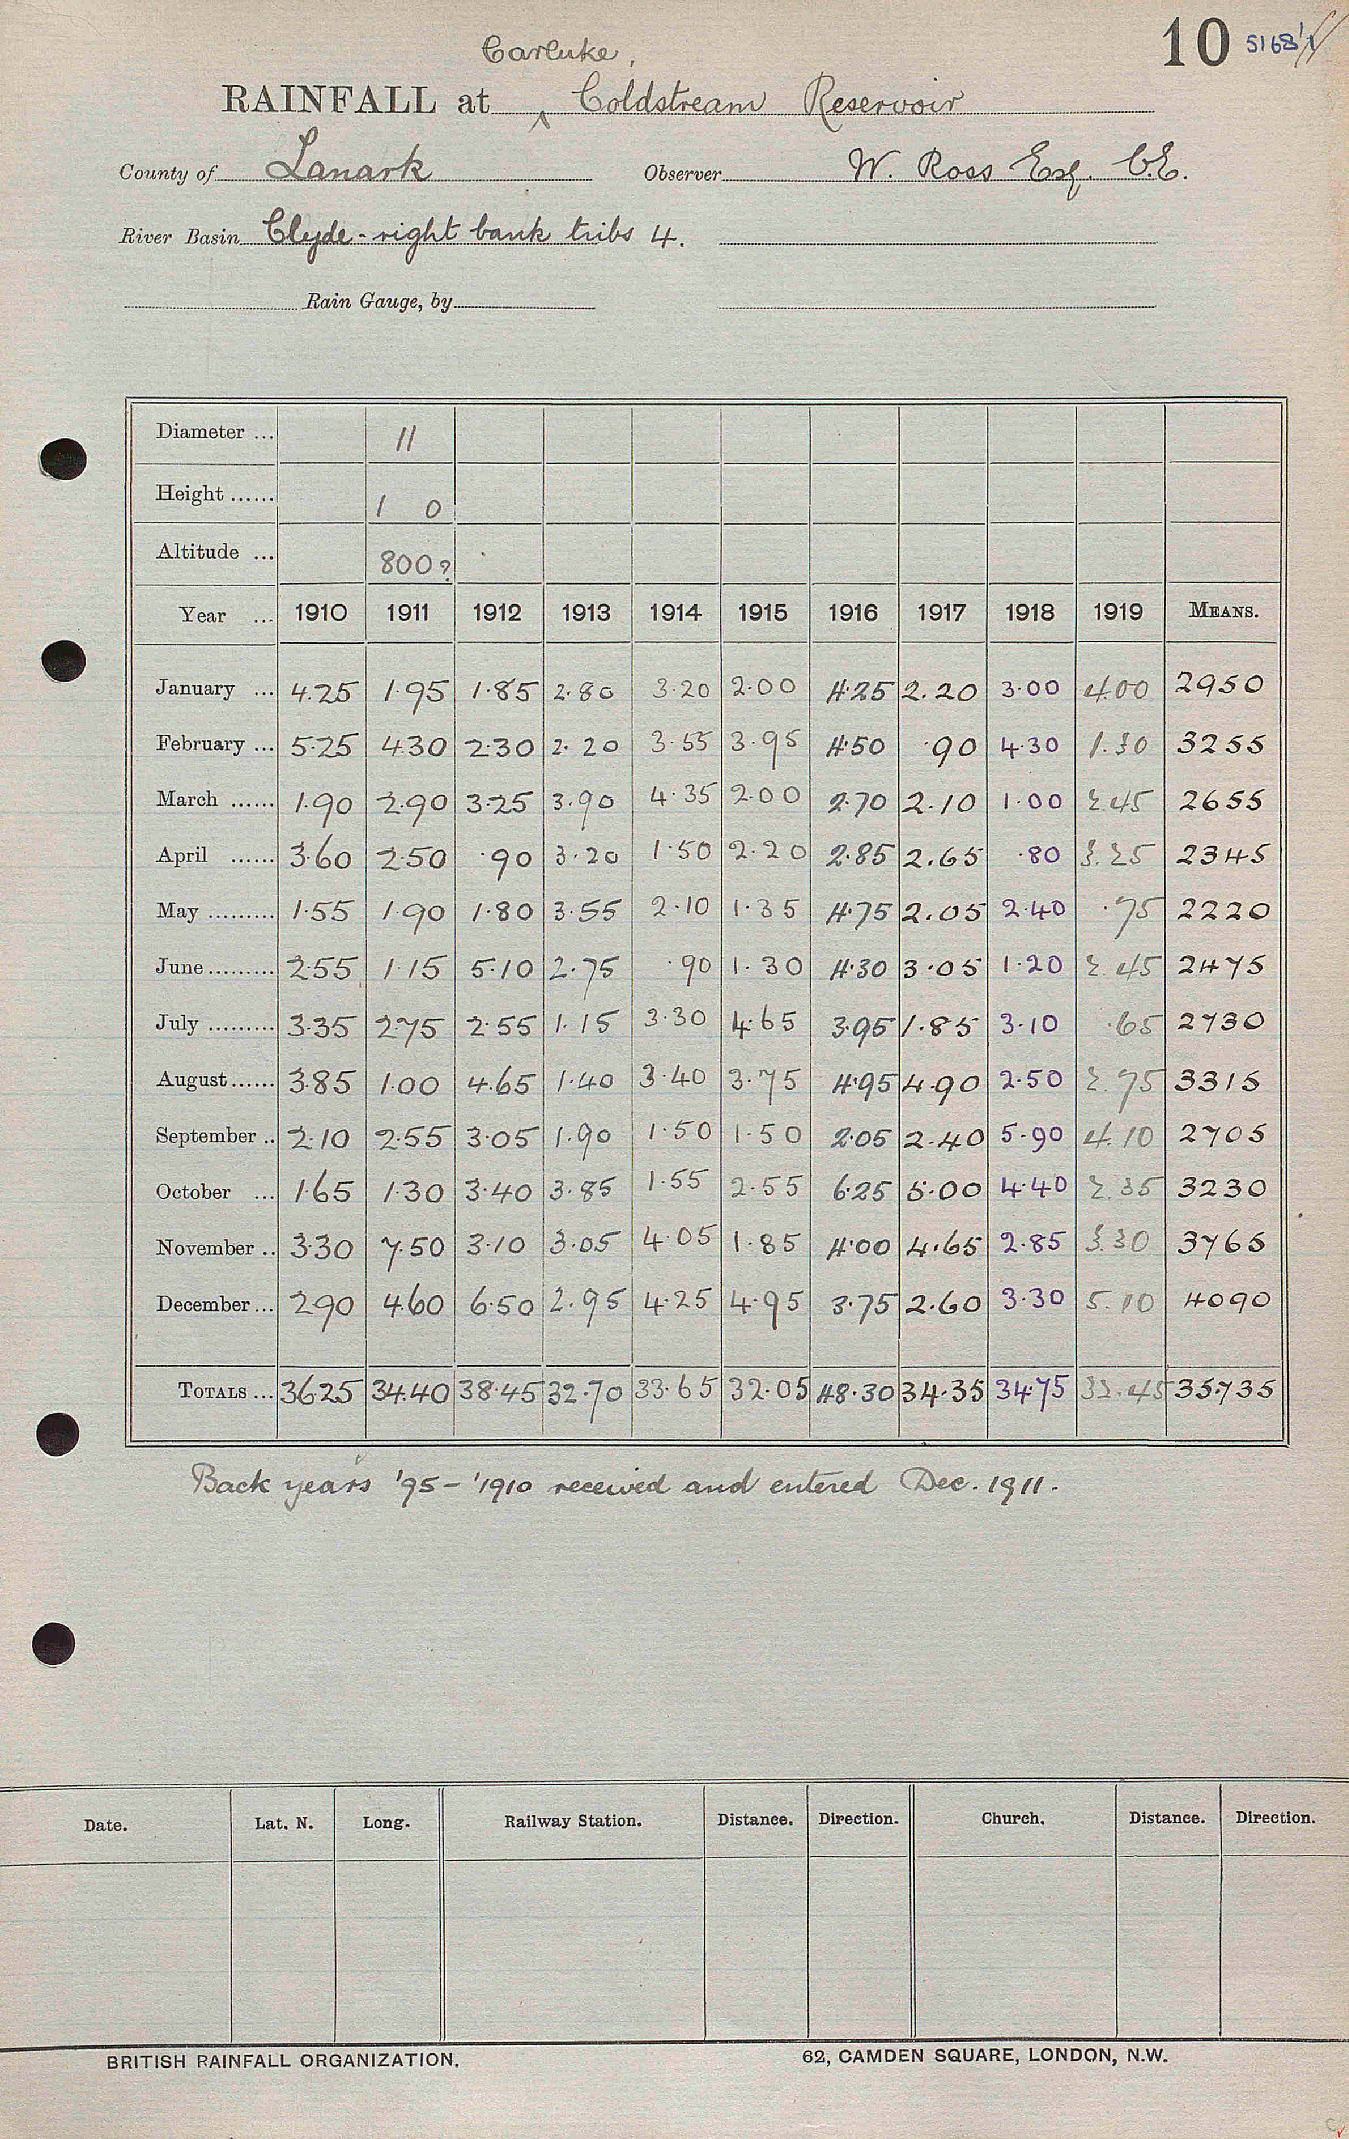 10 5168/1
Carluke,
RAINFALL at Coldstream Reservoir
County of Lanark Observer W. Ross Esq. C.E.
River Basin Clyde - right bank tribs 4.
Rain Gauge, by
Diameter ... 11
Height ...... 1 0
Altitude ... 800?
Year ... 1910 1911 1912 1913 1914 1915 1916 1917 1918 1919 MEANS.
January ... 4.25 1.95 1.85 2.80 3.20 2.00 4.25 2.20 3.00 4.00 2950
February ... 5.25 4.30 2.30 2.20 3.55 3.95 4.50 .90 4.30 1.30 3255
March ...... 1.90 2.90 3.25 3.90 4.35 2.00 2.70 2.10 1.00 2.45 2655
April ...... 3.60 2.50 .90 3.20 1.50 2.20 2.85 2.65 .80 3.25 2345
May ......... 1.55 1.90 1.80 3.55 2.10 1.35 4.75 2.05 2.40 .75 2220
June ......... 2.55 1.15 5.10 2.75 .90 1.30 4.30 3.05 1.20 2.45 2475
July ......... 3.35 2.75 2.55 1.15 3.30 4.65 3.95 1.85 3.10 .65 2730
August ...... 3.85 1.00 4.65 1.40 3.40 3.75 4.95 4.90 2.50 2.75 3315
September .. 2.10 2.55 3.05 1.90 1.50 1.50 2.05 2.40 5.90 4.10 2705
October ... 1.65 1.30 3.40 3.85 1.55 2.55 6.25 5.00 4.40 2.35 3230
November .. 3.30 7.50 3.10 3.05 4.05 1.85 4.00 4.65 2.85 3.30 3765
December ... 2.90 4.60 6.50 2.95 4.25 4.95 3.75 2.60 3.30 5.10 4090
TOTALS ... 36.25 34.40 38.45 32.70 33.65 32.05 48.30 34.35 34.75 32.45 35.735
Back years '95 - '1910 received and entered Dec. 1911.
Date. Lat. N. Long. Railway Station. Distance. Direction. Church. Distance. Direction.
BRITISH RAINFALL ORGANIZATION. 62, CAMDEN SQUARE, LONDON, N.W.